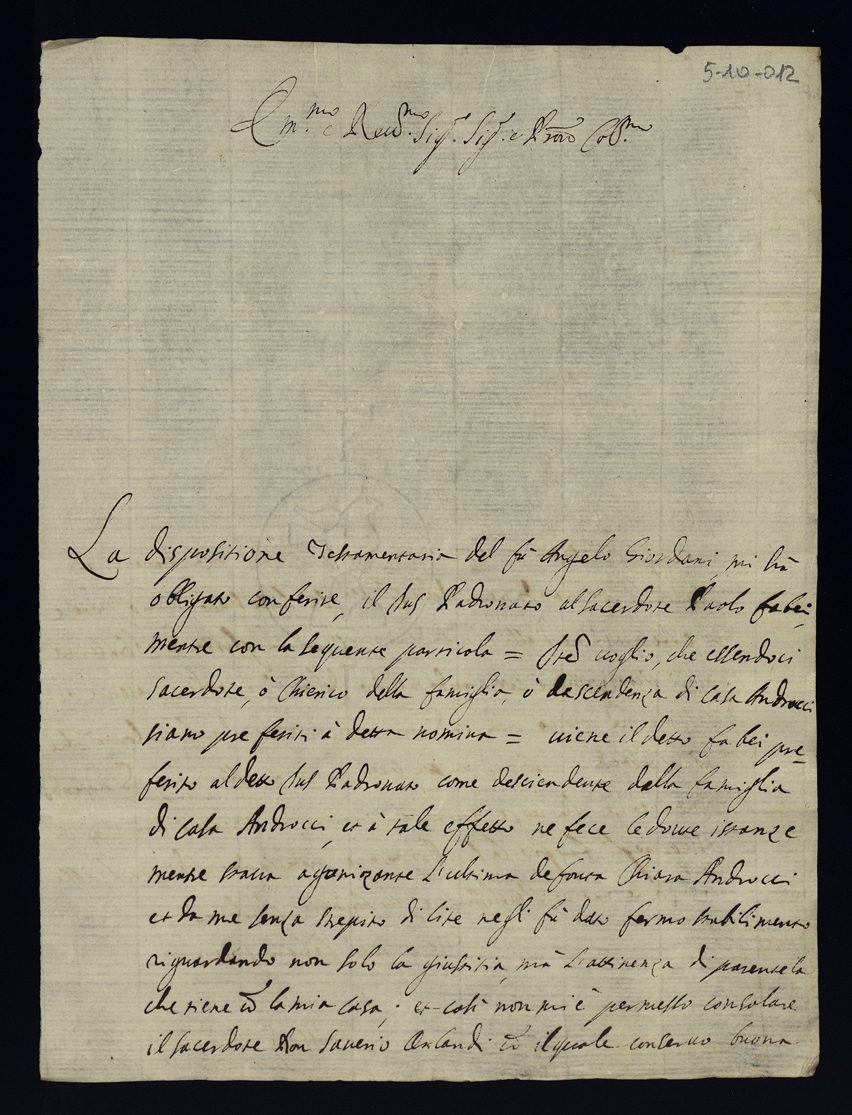 5-10-012
Em.mo e Reu.mo Sig.r Sig.r e Prone Col.mo
La dispositione Testamentaria del fù Angelo Giordani, mi hà
obligato conferire, il Jus Padronato al sacerdote Paolo fabei,
mentre con la sequente particola = Ite uoglio, che essendoci
sacerdote, ò Chierico della famiglia, ò descendenza di casa Androcci
siano preferiti à detta nomina = uiene il detto fabei pre=
ferito al detto Jus Padronato come desciendente della famiglia
di casa Androcci, et à tale effetto ne fece le douute istanze
mentre staua agonizante L'ultima defonta Chiara Androcci
et da me senza strepito di lite negli fù dato fermo stabilimento
riguardando non solo la giustitia, mà L'attinenza di parentela
che tiene cō la mia casa; et così non mi è permesso consolare
il sacerdote Don Sauerio Orlandi cō il quale conseruo buona